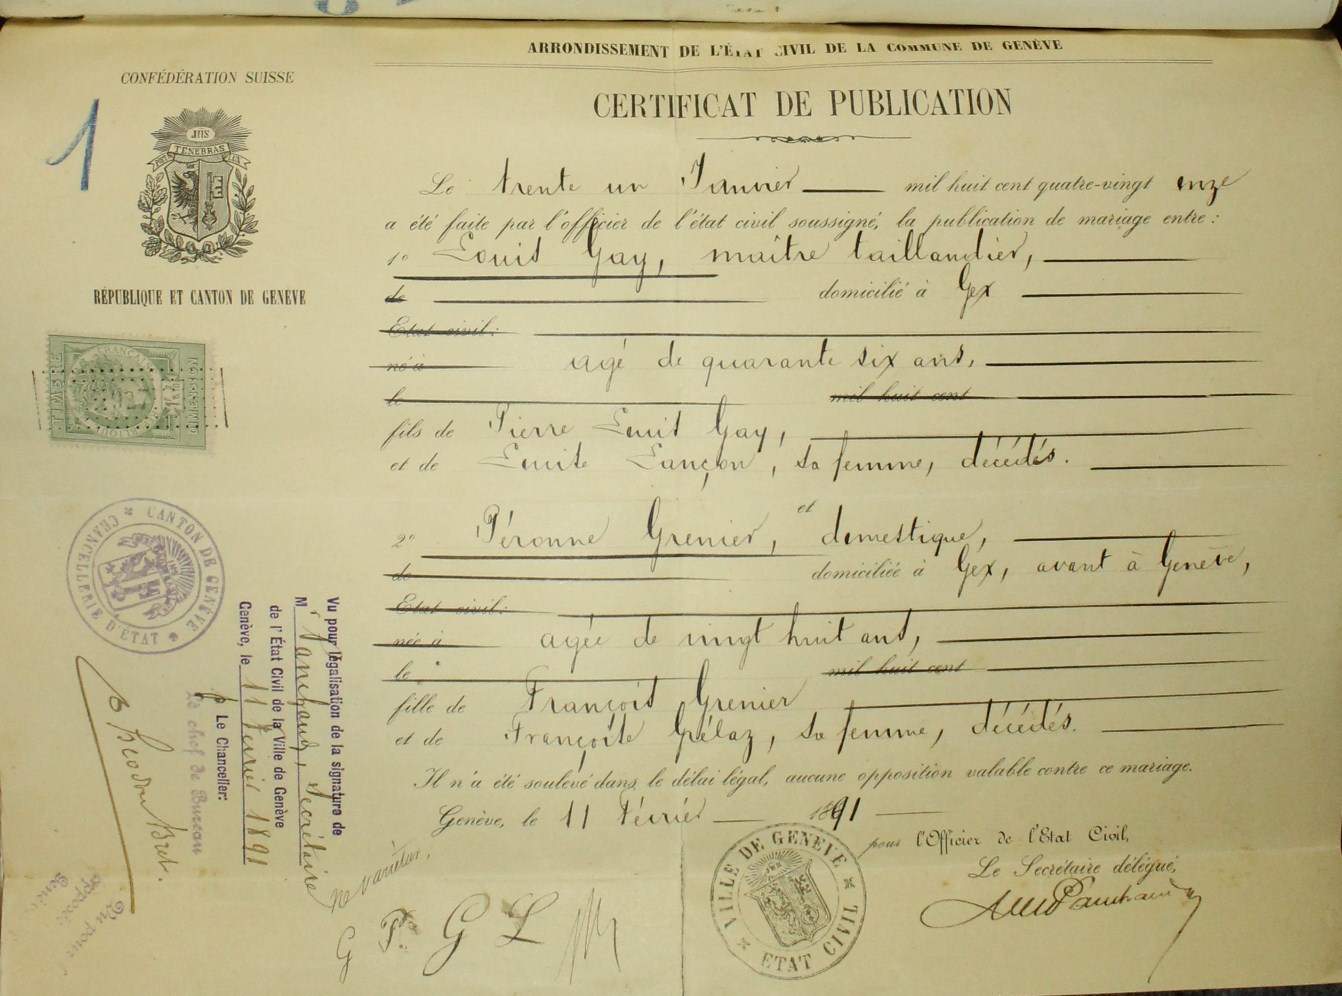 ARRONDISSEMENT DE L'ÉTAT CIVIL DE LA COMMUNE DE GENÈVE
CONFÉDÉRATION SUISSE
1
POST TENEBRAS LUX
RÉPUBLIQUE ET CANTON DE GENÈVE
CERTIFICAT DE PUBLICATION
Le trente un Janvier mil huit cent quatre-vingt onze
a été faite par l'officier de l'état civil soussigné, la publication de mariage entre :
1º Louis Gay, maître taillandier,
de domicilié à Gex
Etat civil :
né à agé de quarante six ans,
le mil huit cent
fils de Pierre Louis Gay,
et de Louise Lançon, sa femme, décédés.
2º Péronne Grenier, et domestique,
de domiciliée à Gex, avant à Genève,
Etat civil :
née à agée de vingt huit ans,
le mil huit cent
fille de François Grenier
et de Françoise Gélaz, sa femme, décédés.
Il n'a été soulevé dans le délai légal, aucune opposition valable contre ce mariage.
Genève, le 11 Février 1891
pour l'Officier de l'Etat Civil,
Le Secrétaire délégué,
VILLE DE GENÈVE
ETAT CIVIL
TIMBRE
CANTON DE GENÈVE
CHANCELLERIE D'ETAT
Vu pour légalisation de la signature de
M Secrétaire
de l'État Civil de la Ville de Genève
Genève, le 11 Février 1891
p Le Chancelier:
Le chef de Bureau
Ne varietur,
G L
Vu pour